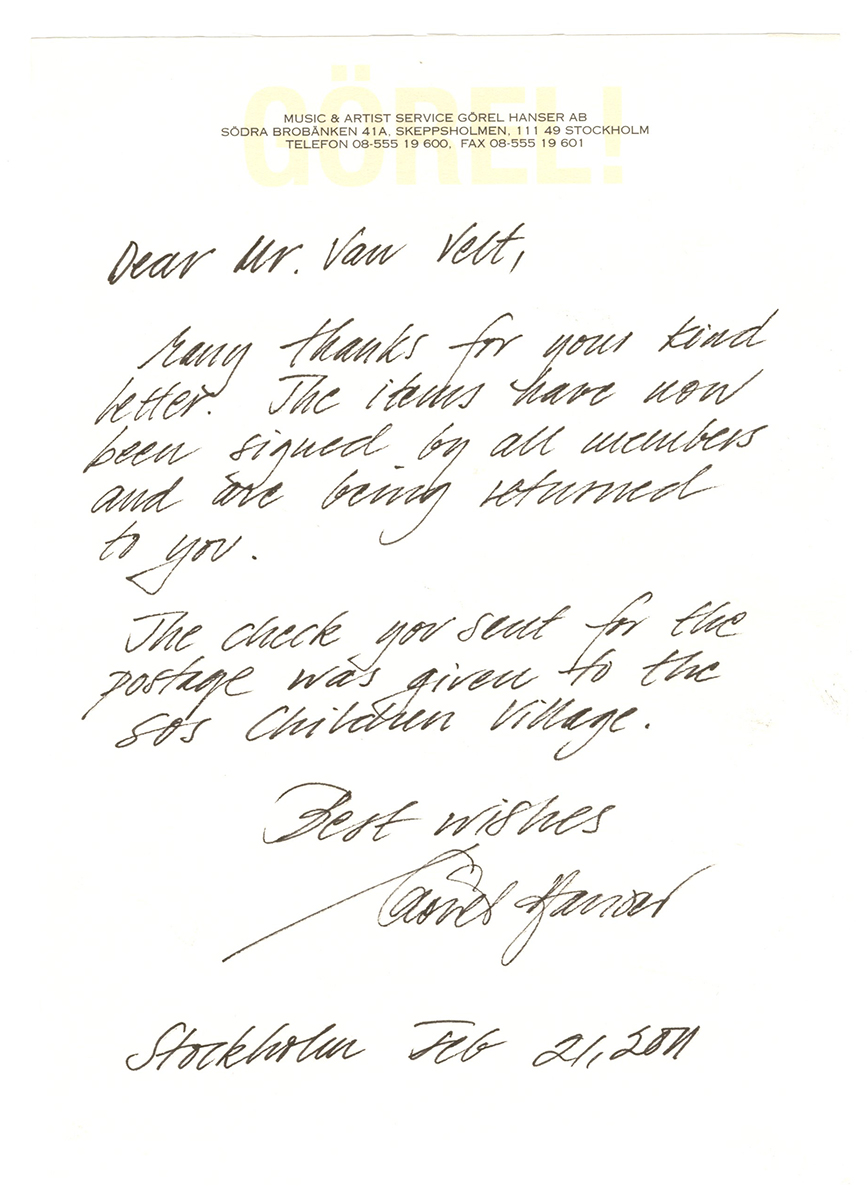 GÖREL!
MUSIC & ARTIST SERVICE GÖREL HANSER AB
SÖDRA BROBÄNKEN 41A, SKEPPSHOLMEN, 111 49 STOCKHOLM
TELEFON 08-555 19 600, FAX 08-555 19 601
Dear Mr. Van Velt,
Many thanks for your kind
letter. The items have now
been signed by all members
and are being returned
to you.
The check you sent for the
postage was given to the
SOS Children Village.
Best wishes
Görel Hanser
Stockholm Feb 21, 2011